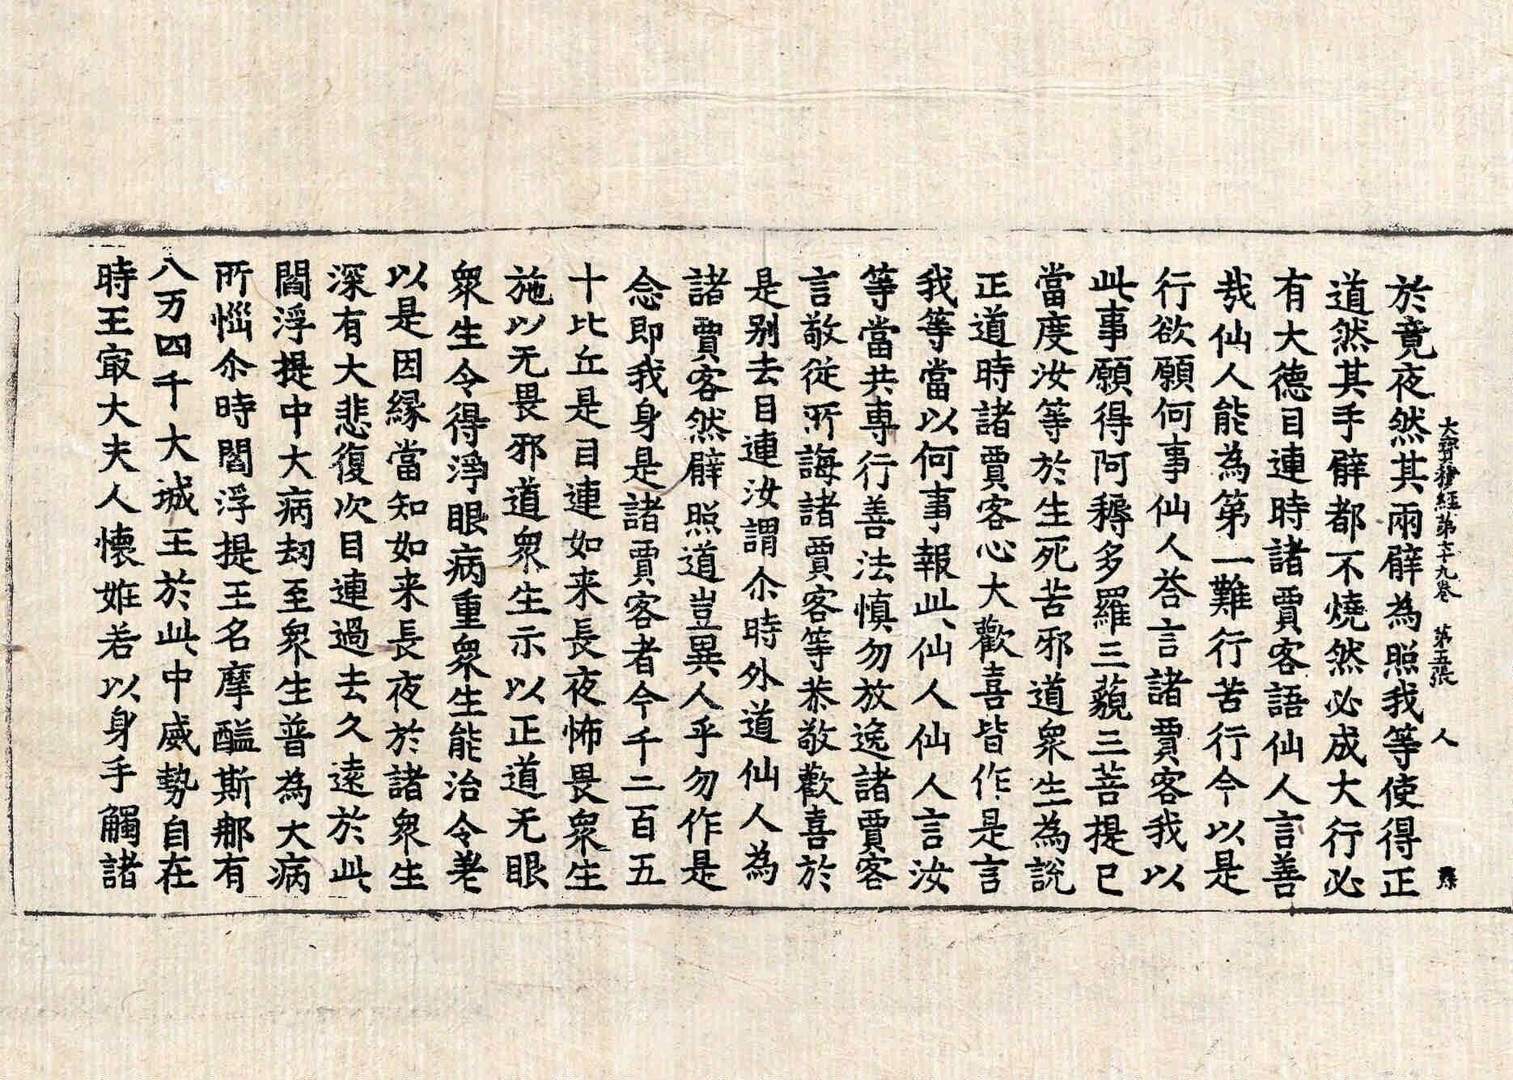 大寶積經第三十九卷 第五張 人
於竟夜然其兩臂為照我等使得正
道然其手臂都不燒然必成大行必
有大德目連時諸賈客語仙人言善
㢤仙人能為第一難行苦行今以是
行欲願何事仙人荅言諸賈客我以
此事願得阿耨多羅三藐三菩提已
當度汝等於生死苦邪道衆生為說
正道時諸賈客心大歡喜皆作是言
我等當以何事報此仙人仙人言汝
等當共專行善法慎勿放逸諸賈客
言敬從所誨諸賈客等恭敬歡喜於
是别去目連汝謂尒時外道仙人為
諸賈客然臂照道豈異人乎勿作是
念即我身是諸賈客者今千二百五
十比丘是目連如来長夜怖畏衆生
施以无畏邪道衆生示以正道无眼
衆生令得淨眼病重衆生能治令差
以是因縁當知如来長夜於諸衆生
深有大悲復次目連過去久遠於此
閻浮提中大病劫至衆生普為大病
所惱尒時閻浮提王名摩醯斯那有
八万四千大城王於此中威勢自在
時王㝡大夫人懷姙若以身手觸諸